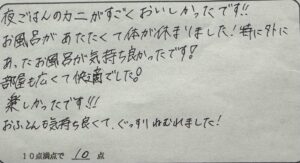 夜ごはんのカニがすごくおいしかったです!!
お風呂があたたくて体が休まりました!特に外に
あったお風呂が気持ち良かったです!
部屋も広くて快適でした。
楽しかったです!!!
おふとんも気持ち良くて、ぐっすりねむれました!
10点満点で 10 点